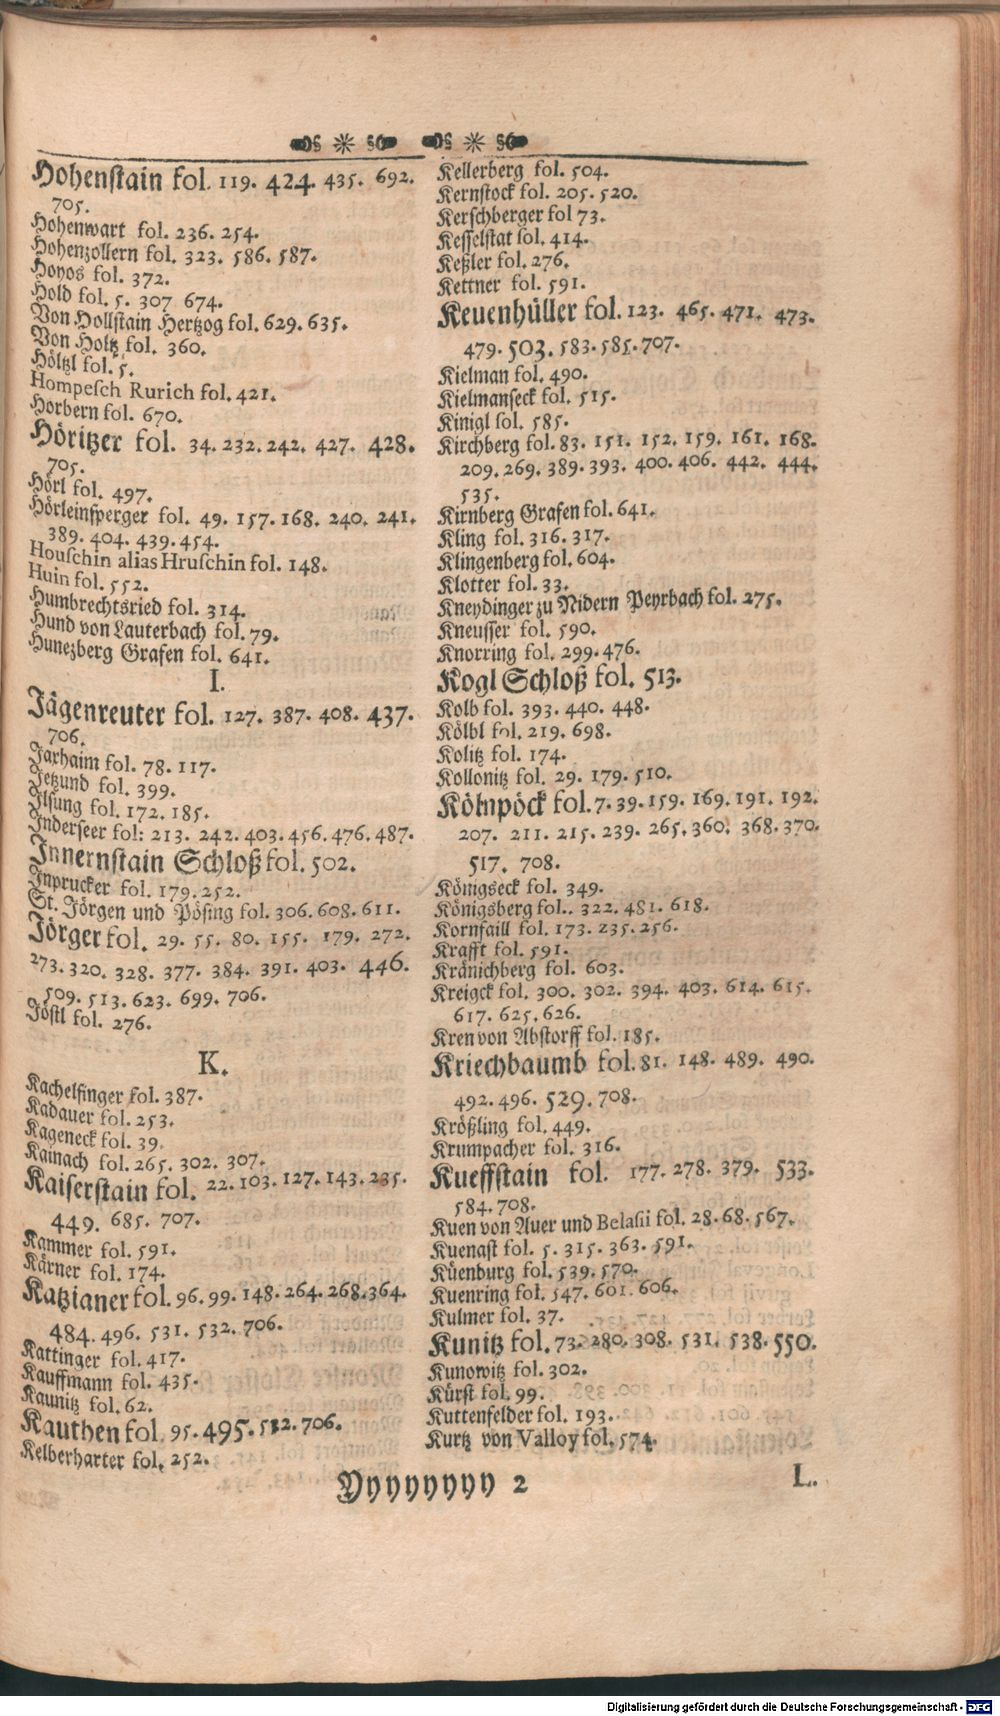 Hohenstain fol. 119. 424. 435. 692.
705.
Hohenwart fol. 236. 254.
Hohenzollern fol. 323. 586. 587.
Hoyos fol. 372.
Hold fol. 5. 307 674.
Von Hollstain Hertzog fol. 629. 635.
Von Holtz fol. 360.
Höltzl fol. 5.
Hompesch Rurich fol. 421.
Horbern fol. 670.
Höritzer fol. 34. 232. 242. 427. 428.
705.
Hörl fol. 497.
Hörleinsperger fol. 49. 157. 168. 240. 241.
389. 404. 439. 454.
Houschin alias Hruschin fol. 148.
Huin fol. 552.
Humbrechtsried fol. 314.
Hund von Lauterbach fol. 79.
Hunezberg Grafen fol. 641.
I.
Jägenreuter fol. 127. 387. 408. 437.
706.
Jaxhaim fol. 78. 117.
Jetzund fol. 399.
Ilsung fol. 172. 185.
Inderseer fol: 213. 242. 403. 456. 476. 487.
Innernstain Schloß fol. 502.
Inprucker fol. 179. 252.
St. Jörgen und Pösing fol. 306. 608. 611.
Jörger fol. 29. 55. 80. 155. 179. 272.
273. 320. 328. 377. 384. 391. 403. 446.
509. 513. 623. 699. 706.
Jöstl fol. 276.
K.
Kachelfinger fol. 387.
Kadauer fol. 253.
Kageneck fol. 39.
Kainach fol. 265. 302. 307.
Kaiserstain fol. 22. 103. 127. 143. 235.
449. 685. 707.
Kammer fol. 591.
Kärner fol. 174.
Katzianer fol. 96. 99. 148. 264. 268. 364.
484. 496. 531. 532. 706.
Kattinger fol. 417.
Kauffmann fol. 435.
Kaunitz fol. 62.
Kauthen fol. 95. 495. 532. 706.
Kelberharter fol. 252.
Kellerberg fol. 504.
Kernstock fol. 205. 520.
Kerschberger fol 73.
Kesselstat fol. 414.
Keßler fol. 276.
Kettner fol. 591.
Keuenhüller fol. 123. 465. 471. 473.
479. 503. 583. 585. 707.
Kielman fol. 490.
Kielmanseck fol. 515.
Kinigl fol. 585.
Kirchberg fol. 83. 151. 152. 159. 161. 168.
209. 269. 389. 393. 400. 406. 442. 444.
535.
Kirnberg Grafen fol. 641.
Kling fol. 316. 317.
Klingenberg fol. 604.
Klotter fol. 33.
Kneydinger zu Nidern Peyrbach fol. 275.
Kneusser fol. 590.
Knorring fol. 299. 476.
Kogl Schloß fol. 513.
Kolb fol. 393. 440. 448.
Kölbl fol. 219. 698.
Kolitz fol. 174.
Kollonitz fol. 29. 179. 510.
Kölnpöck fol. 7. 39. 159. 169. 191. 192.
207. 211. 215. 239. 265. 360. 368. 370.
517. 708.
Königseck fol. 349.
Königsberg fol.. 322. 481. 618.
Kornfaill fol. 173. 235. 256.
Krafft fol. 591.
Kränichberg fol. 603.
Kreigck fol. 300. 302. 394. 403. 614. 615.
617. 625. 626.
Kren von Abstorff fol. 185.
Kriechbaumb fol. 81. 148. 489. 490.
492. 496. 529. 708.
Krößling fol. 449.
Krumpacher fol. 316.
Kueffstain fol. 177. 278. 379. 533.
584. 708.
Kuen von Auer und Belasii fol. 28. 68. 567.
Kuenast fol. 5. 315. 363. 591.
Küenburg fol. 539. 570.
Kuenring fol. 547. 601. 606.
Kulmer fol. 37.
Kunitz fol. 73. 280. 308. 531. 538. 550.
Kunowitz fol. 302.
Kürst fol. 99.
Kuttenfelder fol. 193.
Kurtz von Valloy fol. 574.
Yyyyyyyy 2
L.
Digitalisierung gefördert durch die Deutsche Forschungsgemeinschaft - DFG